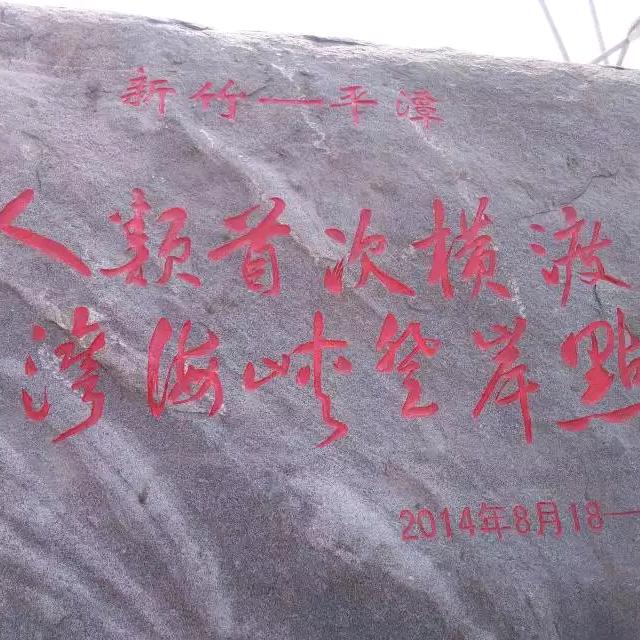 新竹—平潭
人類首次橫渡
灣海峽登岸點
2014年8月18—